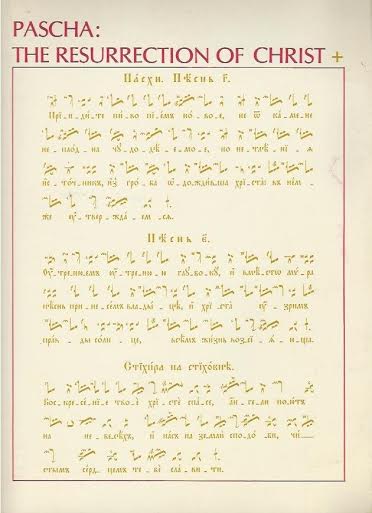 PASCHA:
THE RESURRECTION OF CHRIST +
Па́схи. Пѣ́снь г҃.
Прї_и_ди́_те пи́_во пї_е́мъ но́_во_е, не ѿ ка́_ме_не
не_пло́д_на чу_до_дѣ́_е_мо_е, но не_тлѣ́_нї_ѧ
и҆с_то́ч_никъ, и҆з̾ гро́_ба ѡ҆_дожди́вша хрї_ста̀ въ не́м _
же ᲂу҆_твер_жда́_ем_сѧ.
Пѣ́снь є҃.
Оу҆́_тре_нюемъ ᲂу҆́_тре_ню_ю глу_бо_ку, и҆ вмѣ́стѡ мѵ́_ра
пѣ́снь при_не_се́мъ влады́_цѣ, и҆ хрї_ста̀ ᲂу҆́_зримъ
пра́в_ды со́лн_це, всѣ́мъ жи́знь воз_сї_ѧ́_юща.
Стїхи́ра на стїхо́внѣ.
Вос_кре_се́_нї_е тво_ѐ хрї_стѐ спа́_се, а҆́н_ге_ли по_ю́тъ
на не_бе_сѣ́хъ, и҆ на́съ на зе_млѝ спо_до́_би, чи_
стымъ се́рд_цемъ те_бѐ сла́_ви_ти.